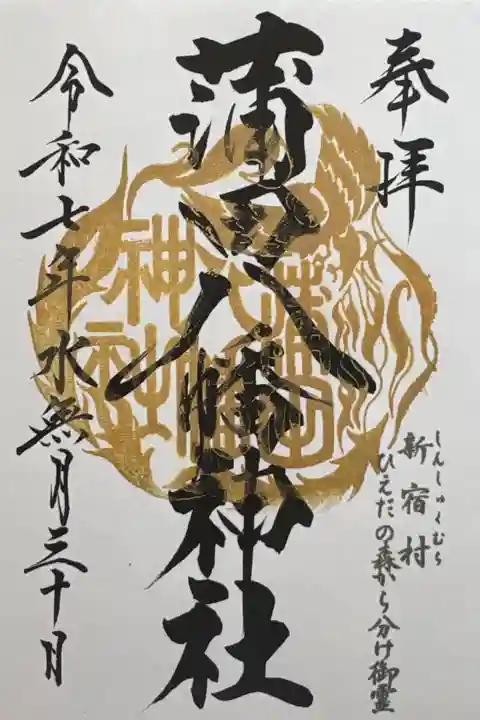 奉拝
しんしゅくむら
新宿村
ひえだの森から分け御霊
蒲田八幡神社
蒲田
八幡
神社
令和七年水無月三十日